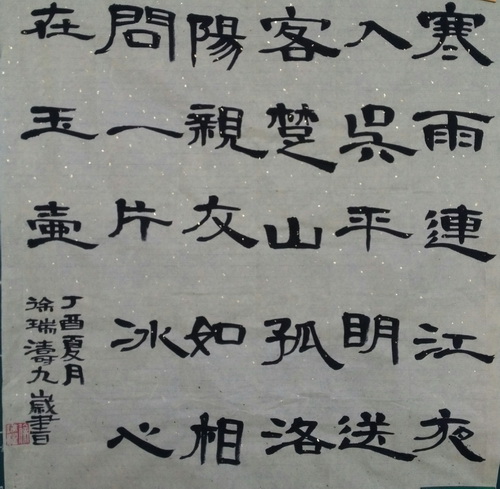 寒雨連江夜
入吳平明送
客楚山孤洛
陽親友如相
問一片冰心
在玉壺
丁酉夏月
徐瑞濤九歲書